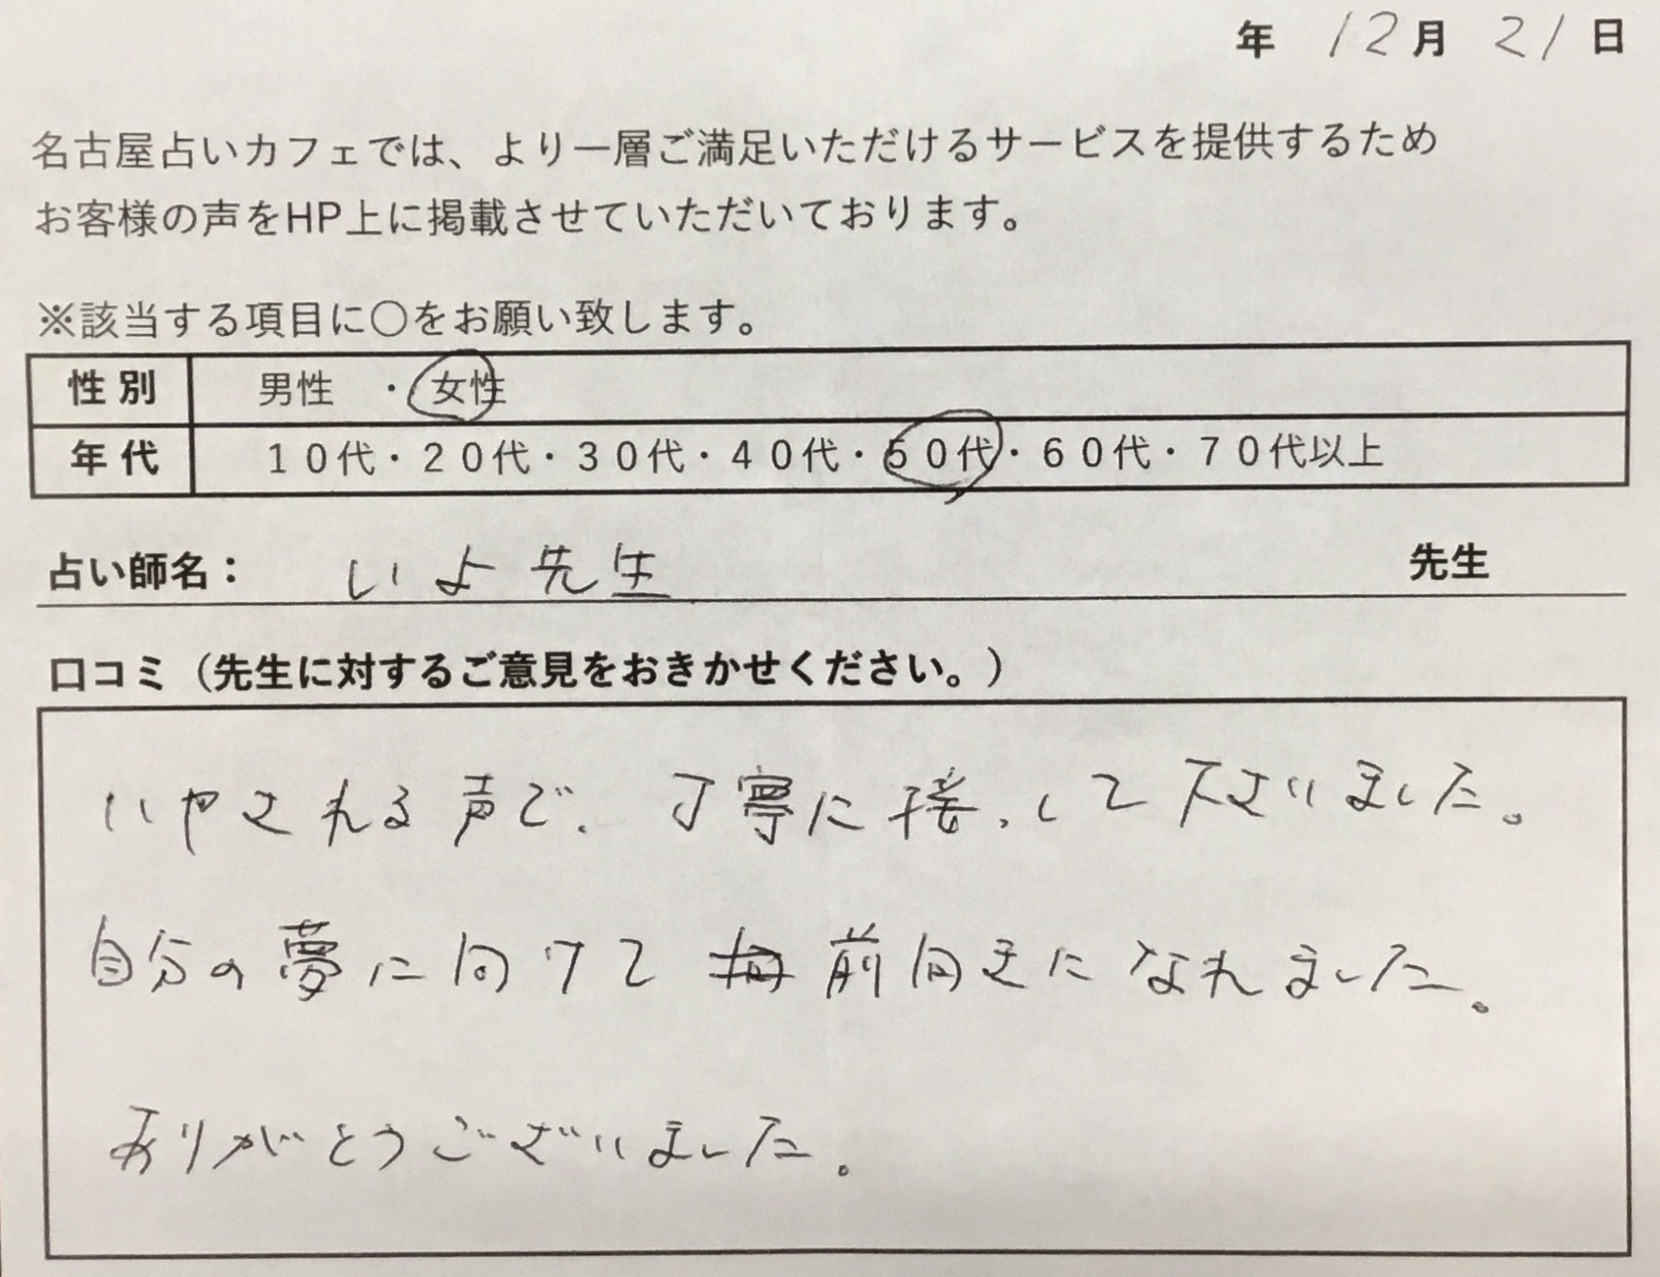 年 12月 21日
名古屋占いカフェでは、より一層ご満足いただけるサービスを提供するため
お客様の声をHP上に掲載させていただいております。
※該当する項目に〇をお願い致します。
性別 男性 ・ 女性
年代 10代・20代・30代・40代・50代・60代・70代以上
占い師名: いよ先生 先生
口コミ（先生に対するご意見をおきかせください。）
いやされる声で、丁寧に接して下さいました。
自分の夢に向けて前向きになれました。
ありがとうございました。